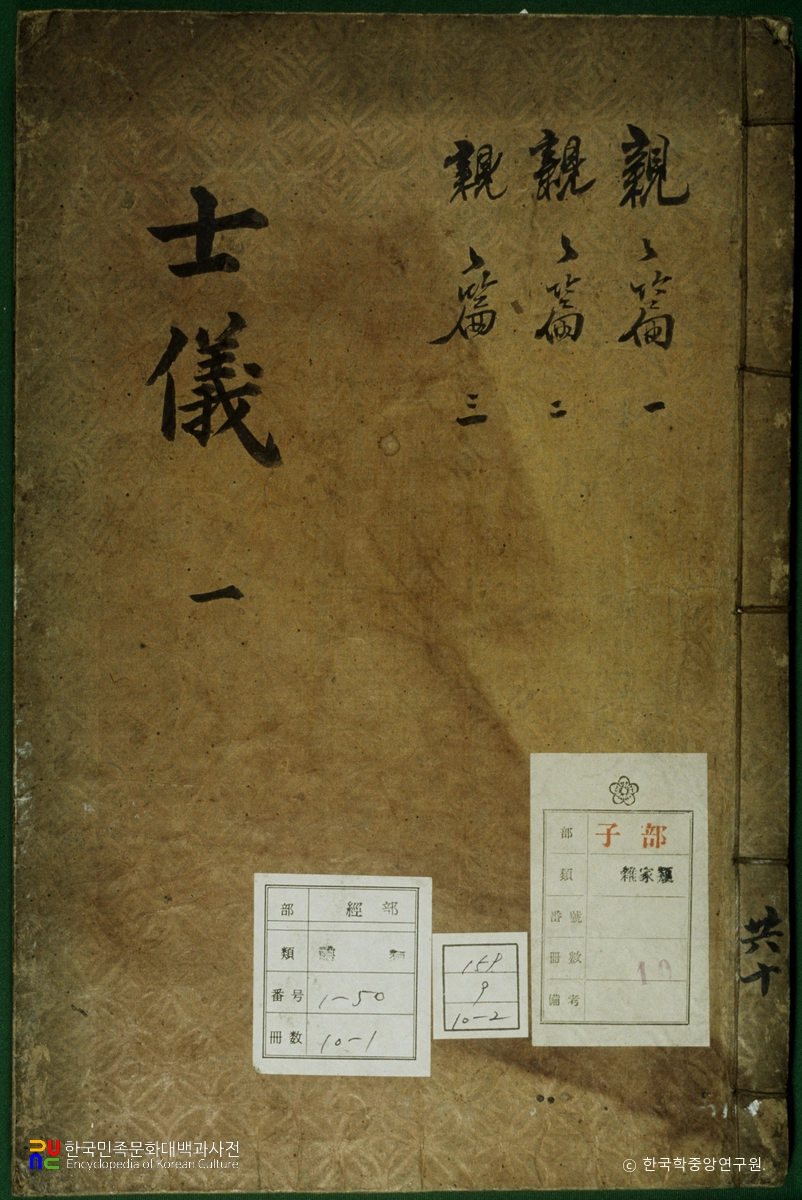 親〻篇 一
親〻篇 二
親〻篇 三
士儀 一
共十
部 子部
類 雜家類
番號
冊數 10
備考
159
9
10-2
部 經部
類
番号 1-50
冊数 10-1
한국민족문화대백과사전
Encyclopedia of Korean Culture
ⓒ 한국학중앙연구원